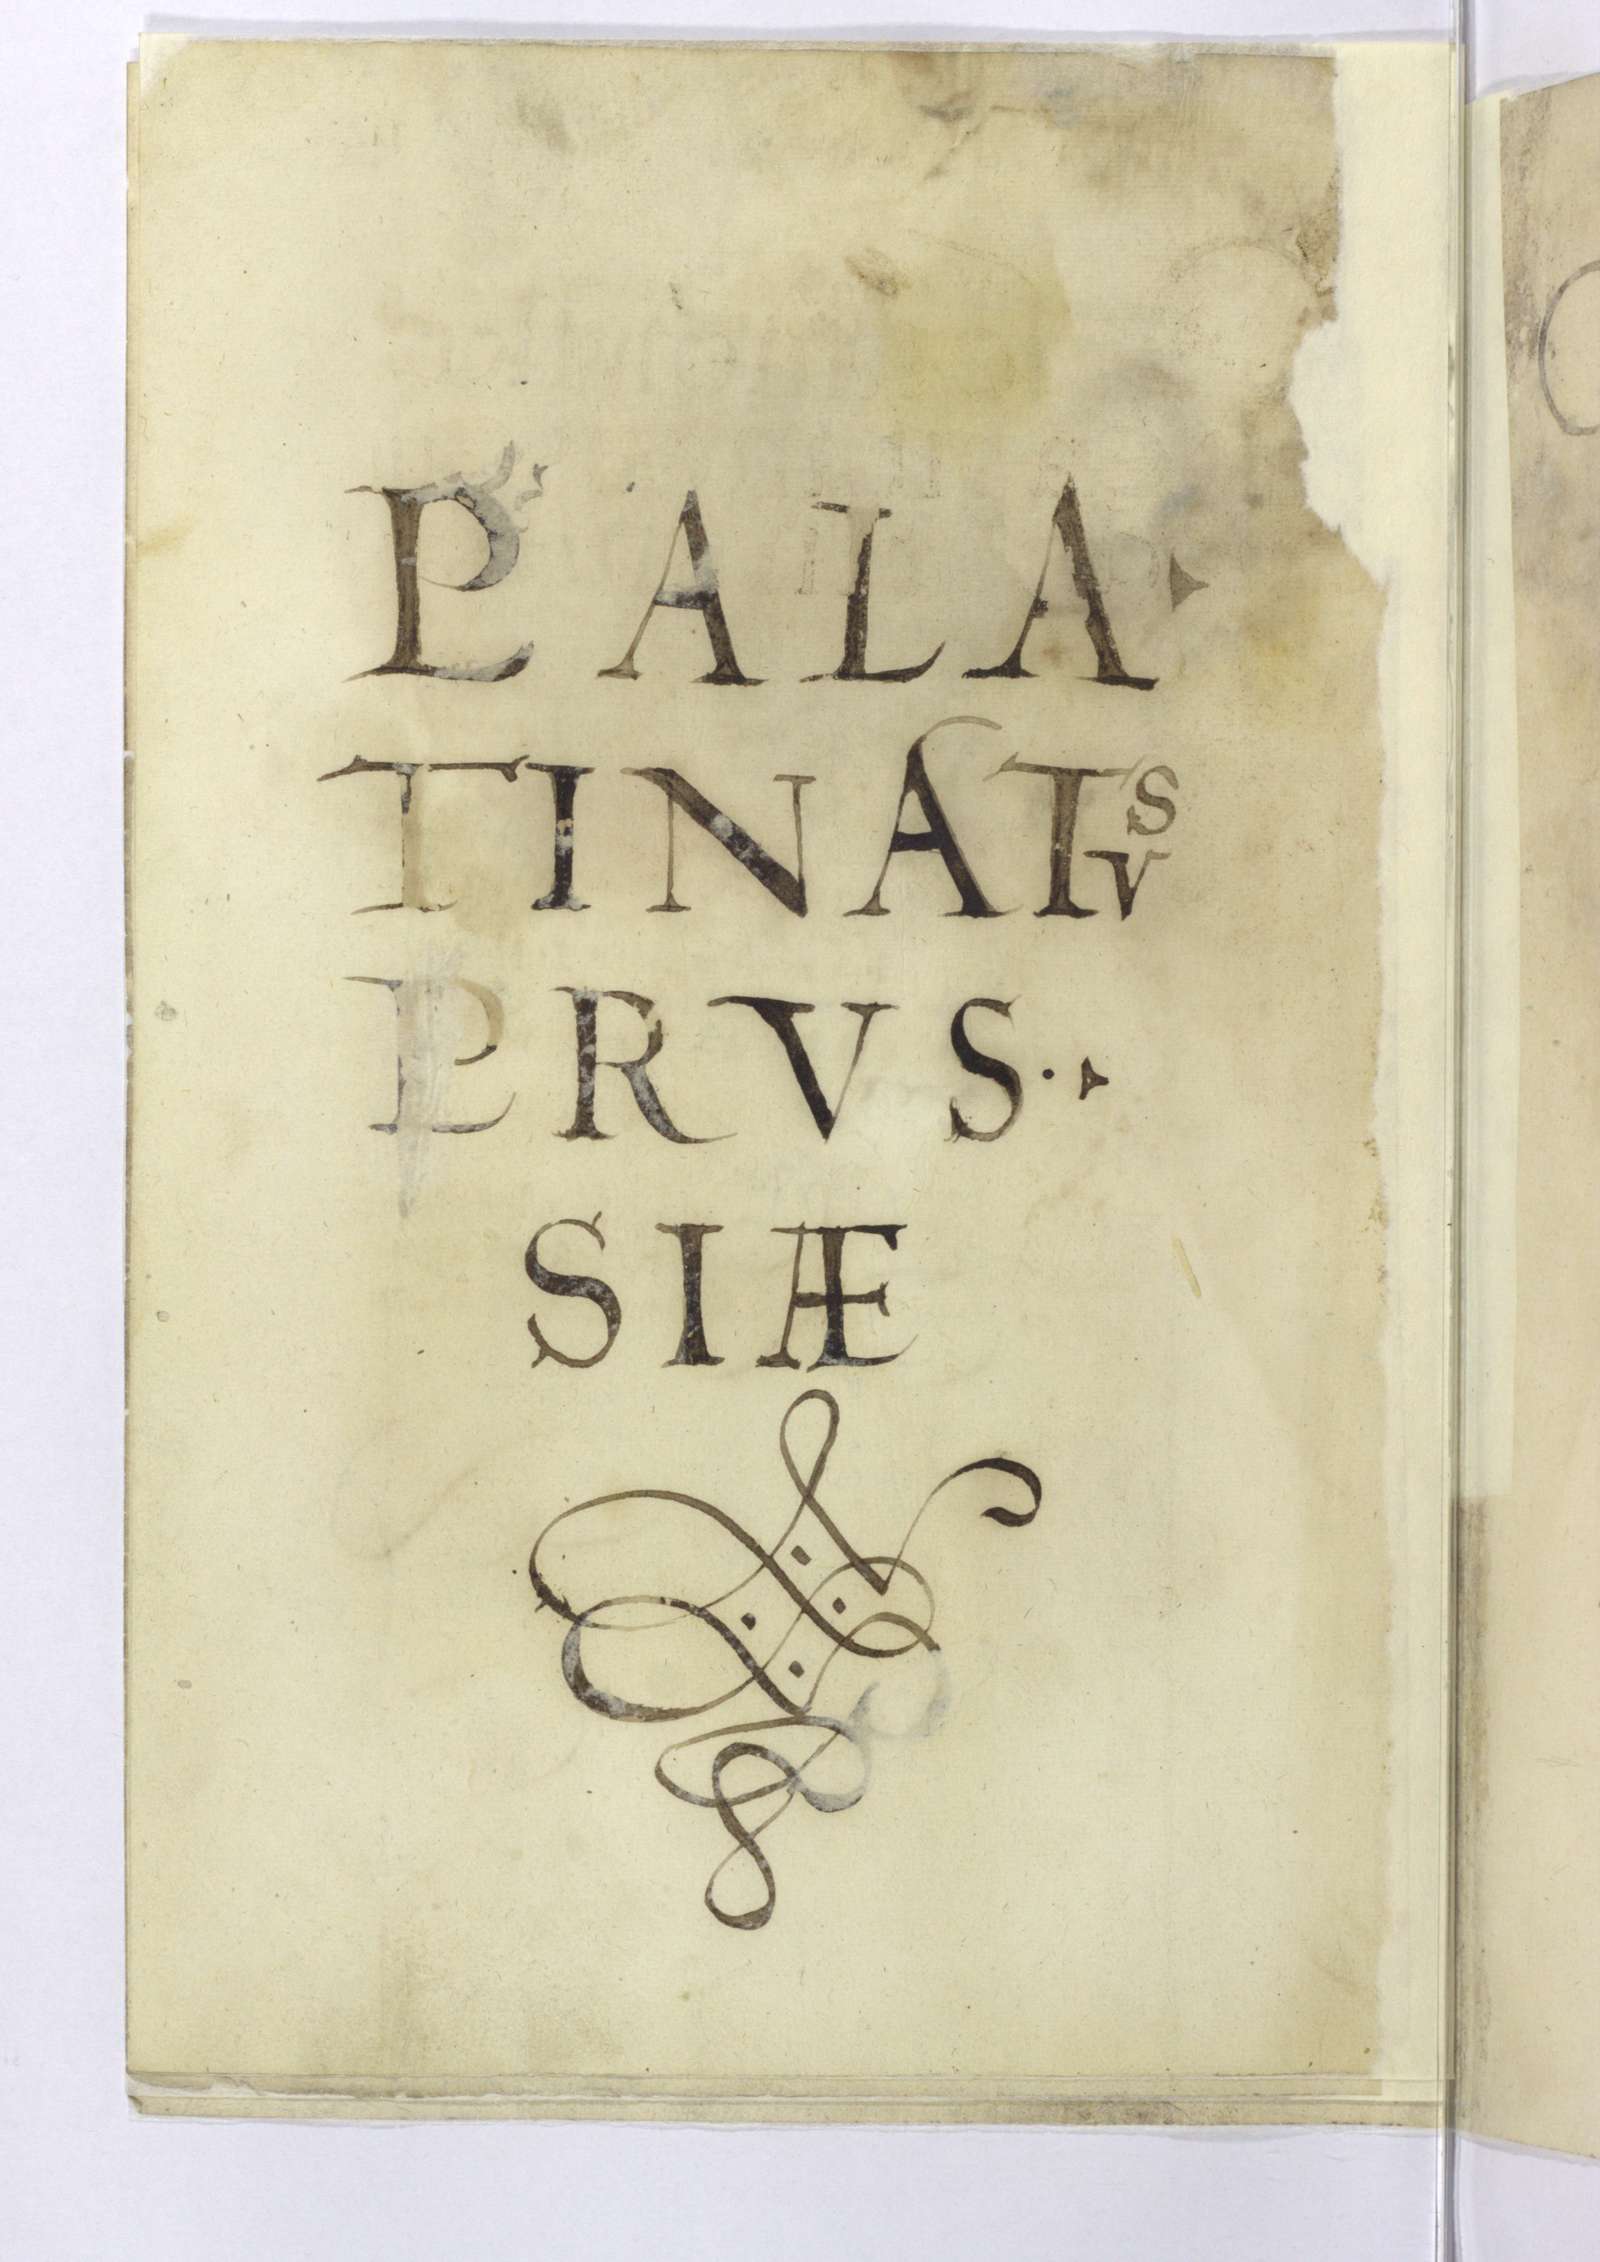 PALA
TINATVS
PRVS
SIÆ